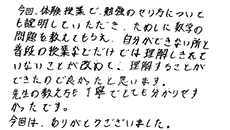 今回、体験授業で、勉強のやり方について
も説明していただき、ためしに数学の
問題を教えてもらえ、自分ができない所と
普段の授業などだけでは理解しきれて
いないことが改めて、理解することが
できたので良かったと思います。
先生の教え方も丁寧でとても分かりやす
かったです。
今回は、ありがとうございました。